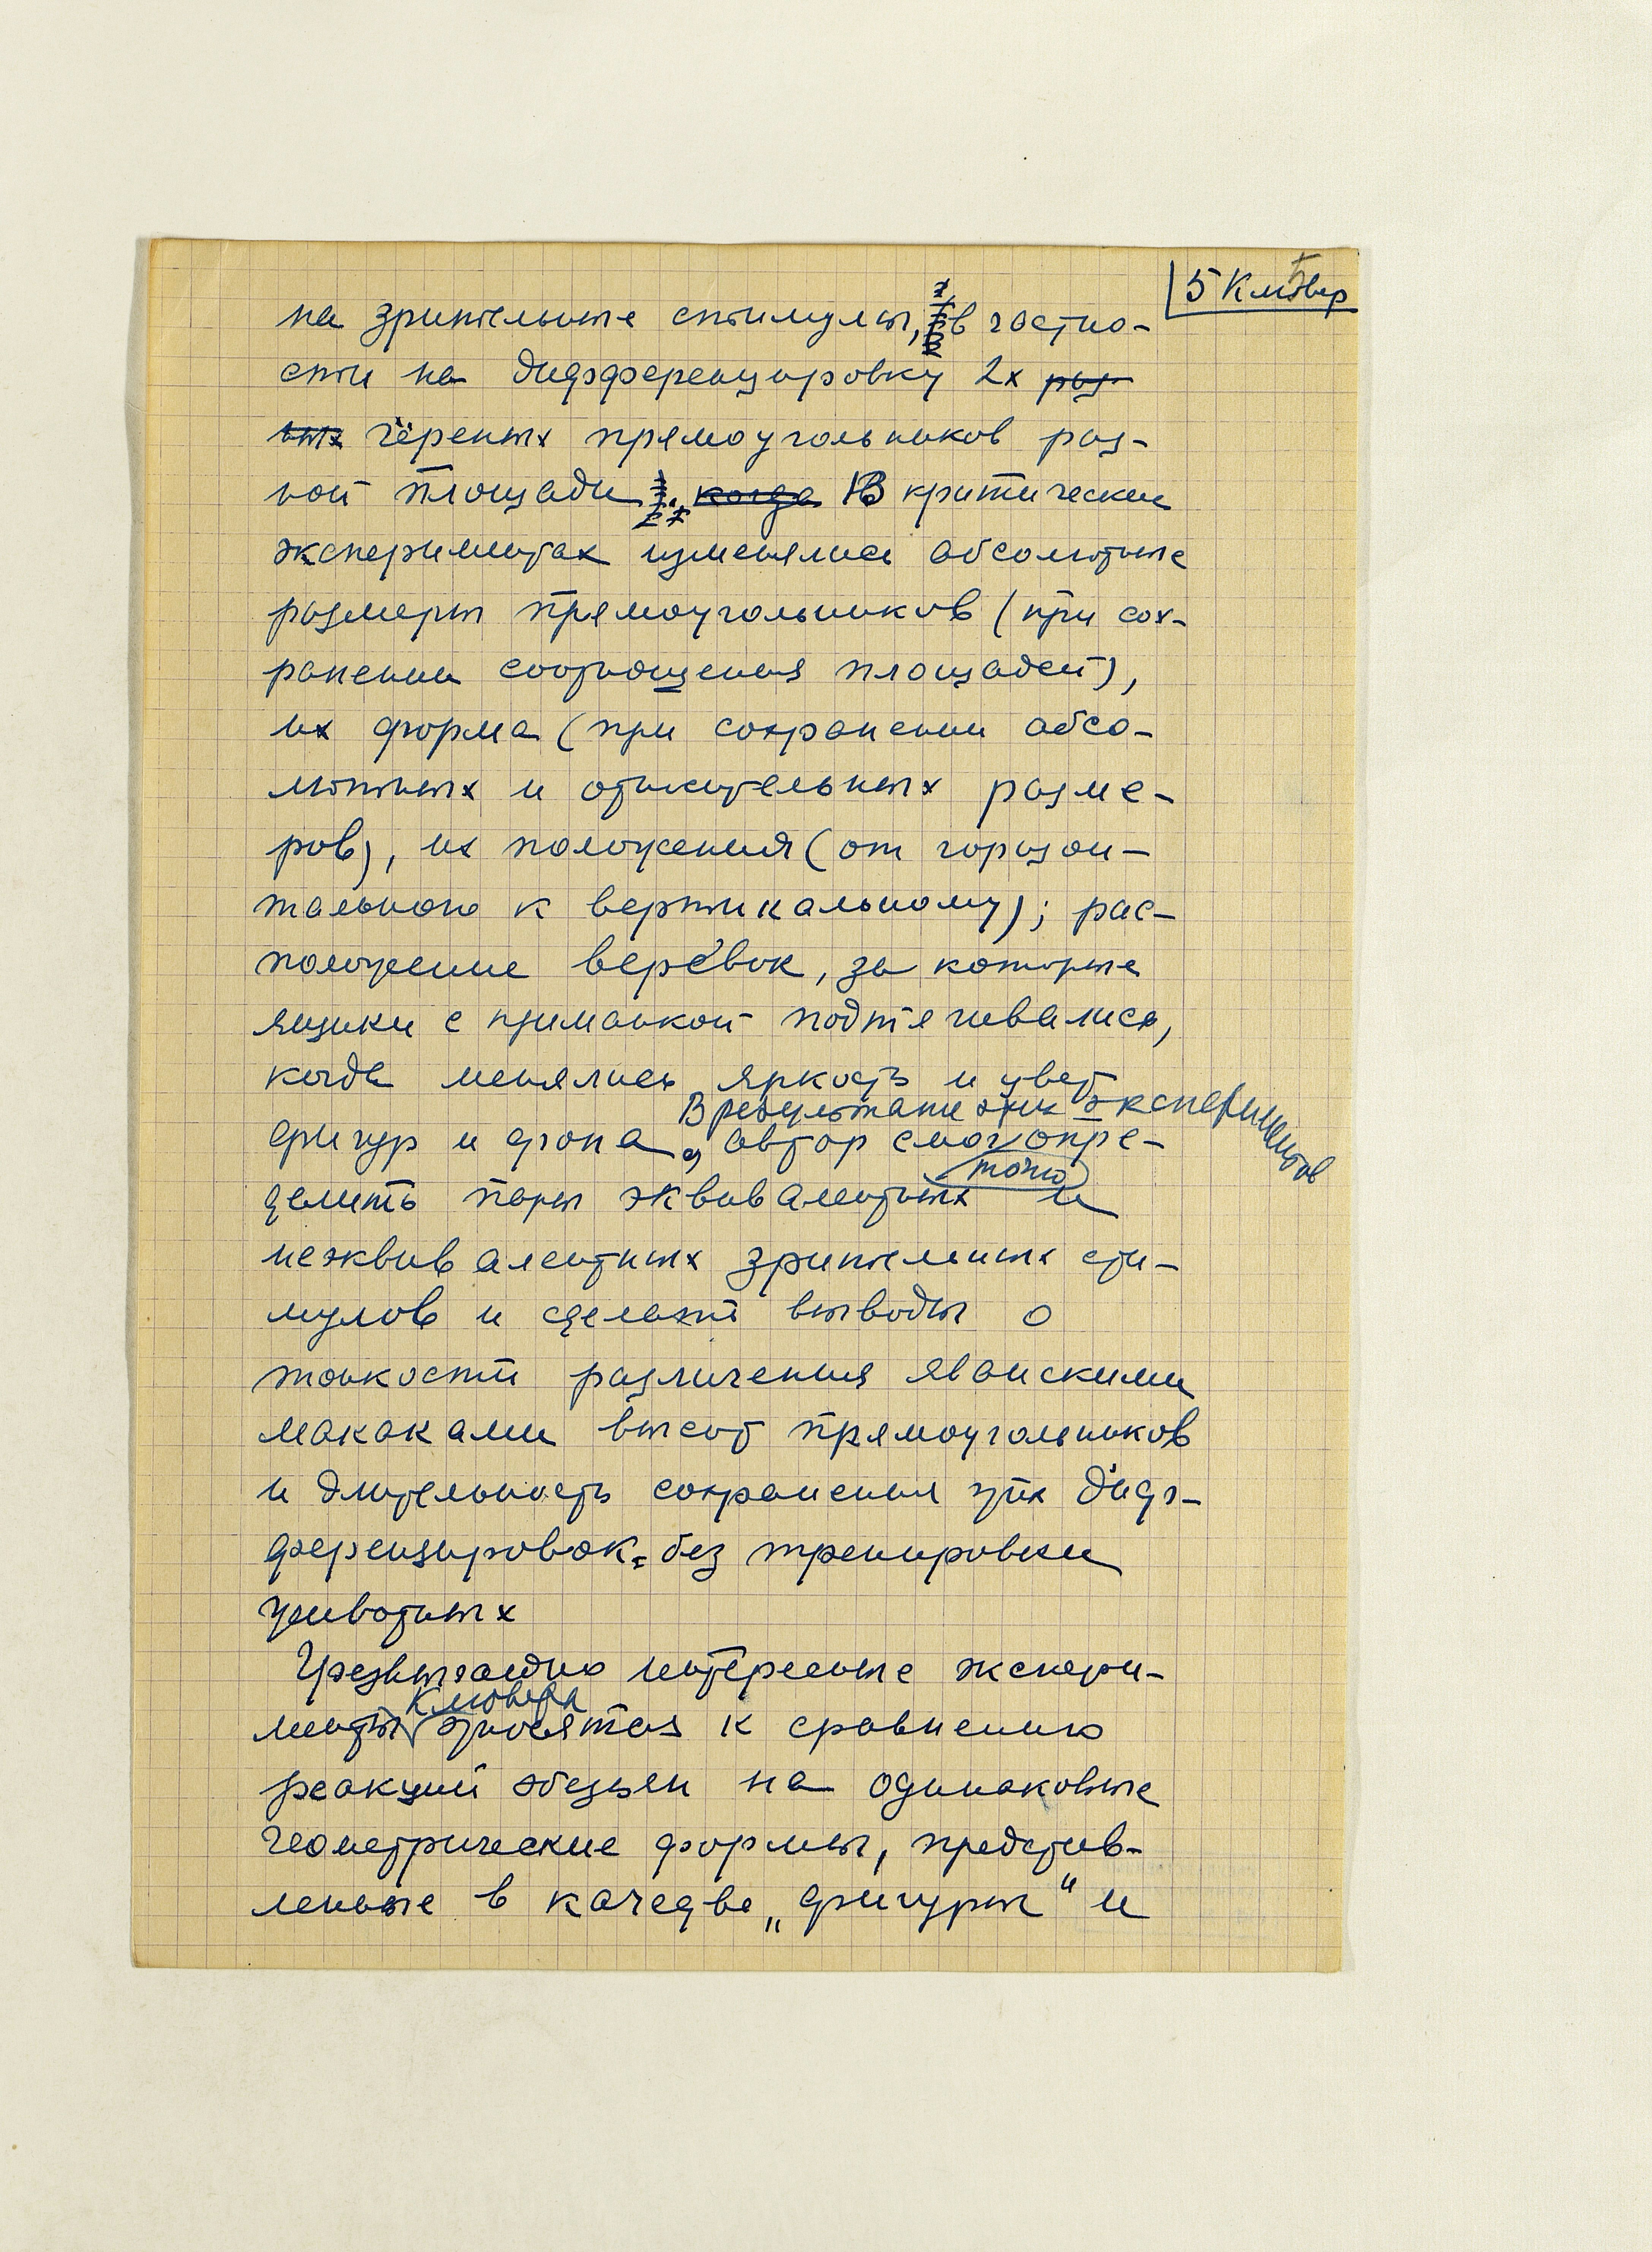 5 Клювер
на зрительные стимулы, в частно-
сти на дифференцировку 2х раз-
ных чёрных прямоугольников раз-
ной площади. когда В критических
экспериментах изменялись абсолютные
размеры прямоугольников (при сох-
ранении соотношения площадей),
их форма (при сохранении абсо-
лютных и относительных разме-
ров), их положения (от горизон-
тального к вертикальному); рас-
положение верёвок, за которые
ящики с приманкой подтягивались,
когда менялись яркость и цвет
В результате этих экспериментов
фигур и фона, автор смог опре-
точно
делить пары эквивалентных и
неэквивалентных зрительных сти-
мулов и сделать выводы о
тонкости различения яванскими
макаками высот прямоугольников
и длительность сохранения этих диф-
ференцировок без тренировки
животных
Чрезвычайно интересные экспери-
Клювера
менты относятся к сравнению
реакций обезьян на одинаковые
геометрические формы, представ-
ленные в качестве „фигуры" и